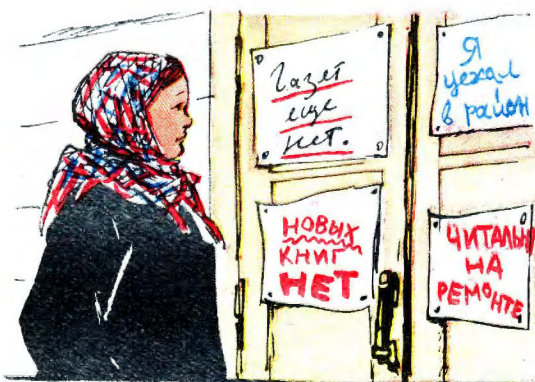 Газет
еще
нет.
Я
уехал
в район
НОВЫХ
КНИГ
НЕТ
ЧИТАЛЬН
НА
РЕМОНТЕ